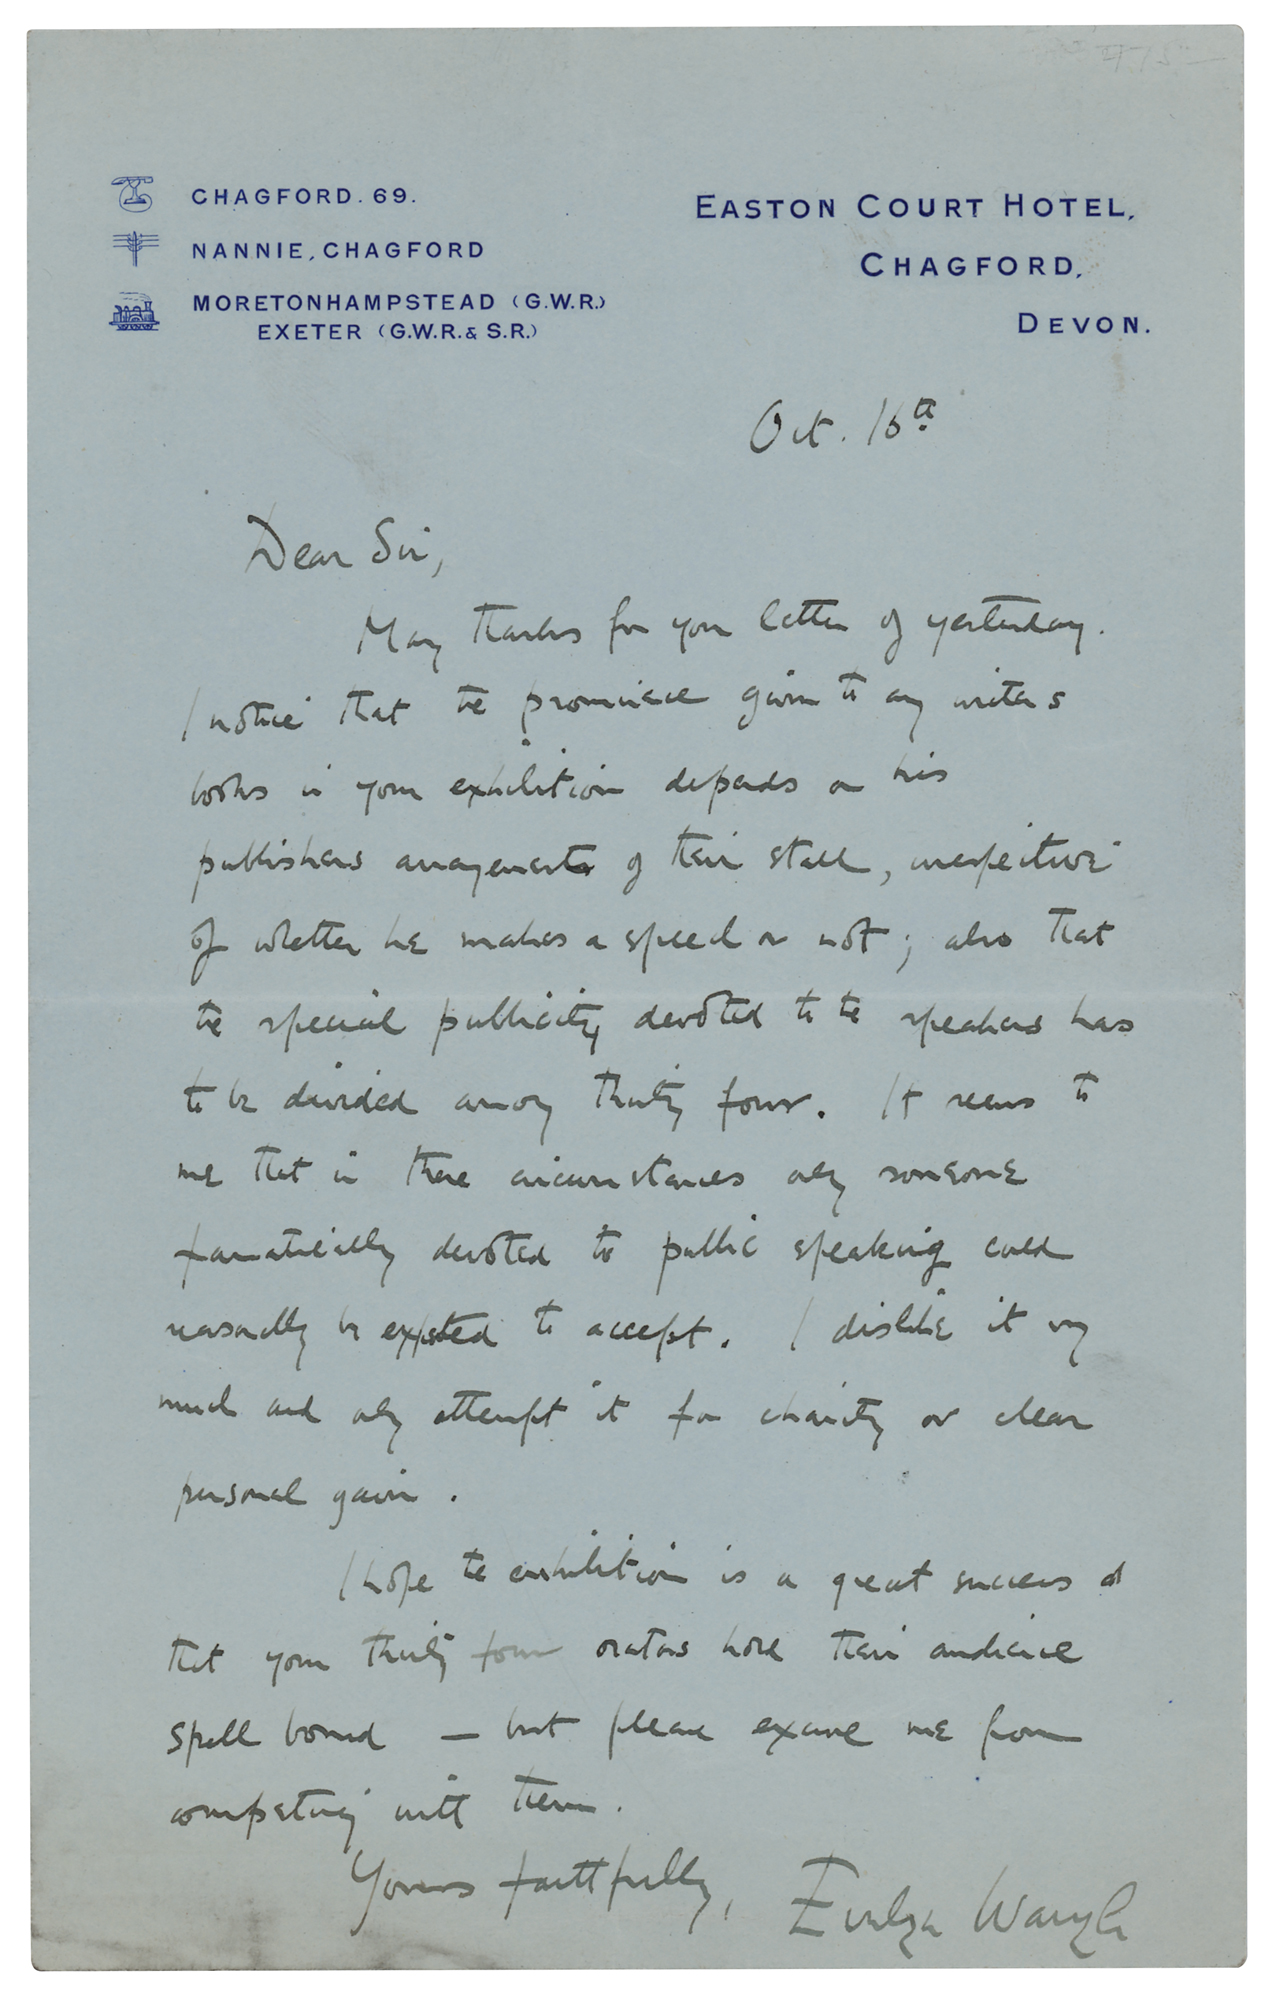 CHAGFORD. 69.
NANNIE, CHAGFORD
MORETONHAMPSTEAD (G.W.R.)
EXETER (G.W.R. & S.R.)
EASTON COURT HOTEL,
CHAGFORD,
DEVON.
Oct. 16th
Dear Sir,
Many thanks for your letter of yesterday.
I notice that the prominence given to any writers
books in your exhibition depends on his
publishers arrangements of their stall, irrespective
of whether he makes a speech or not; also that
the special publicity devoted to the speakers has
to be divided among thirty four. It seems to
me that in these circumstances only someone
fanatically devoted to public speaking could
reasonably be expected to accept. I dislike it very
much and only attempt it for charity or clear
personal gain.
I hope the exhibition is a great success &
that your thirty four orators hold their audience
spell bound — but please excuse me from
competing with them.
Yours faithfully,
Evelyn Waugh